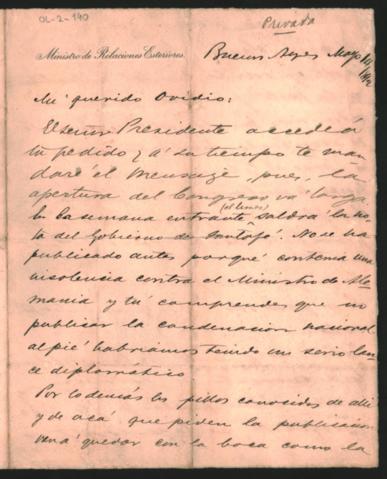 OL-2-190
Privada
Ministro de Relaciones Exteriores.
Buenos Ayres Mayo
Mi querido Ovidio:
El Señor Presidente accede á
tu pedido y á su tiempo te man
daré el Mensage, pues, la
apertura del Congreso va
(el lunes)
En la semana entrante saldrá la no
ta del Gobierno de Santafé. No se ha
publicado antes porque contenia una
insolencia contra el Ministro de Ale
mania y tú comprendes que no
publicar la condenacion nacional
al pié habriamos tenido un serio lan
ce diplomático
Por lo demás los pillos conocidos de alli
y de acá que piden la publicacion
van á quedar con la boca como la